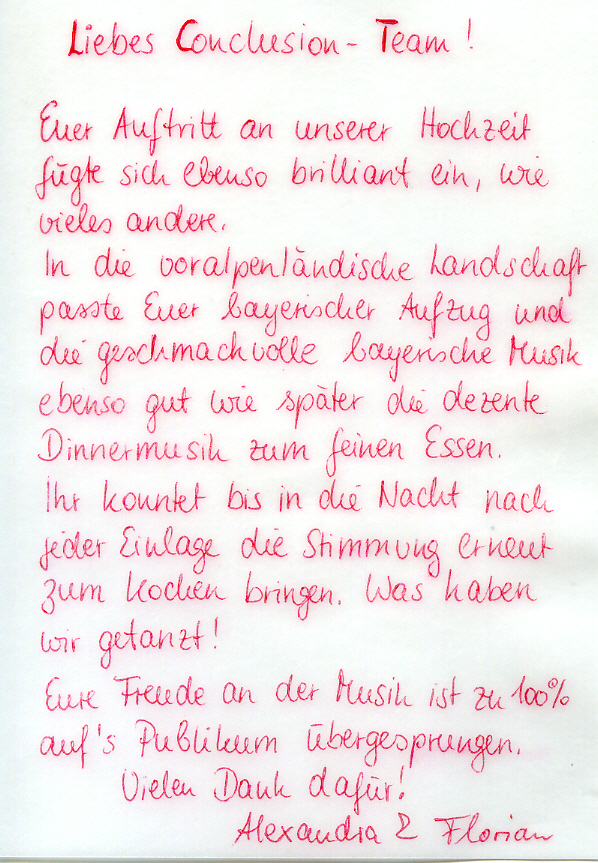 Liebes Conclusion-Team!
Euer Auftritt an unserer Hochzeit
fügte sich ebenso brilliant ein, wie
vieles andere.
In die voralpenländische Landschaft
passte Euer bayerischer Aufzug und
die geschmackvolle bayerische Musik
ebenso gut wie später die dezente
Dinnermusik zum feinen Essen.
Ihr konntet bis in die Nacht nach
jeder Einlage die Stimmung erneut
zum Kochen bringen. Was haben
wir getanzt!
Eure Freude an der Musik ist zu 100%
auf's Publikum übergesprungen.
Vielen Dank dafür!
Alexandra & Florian